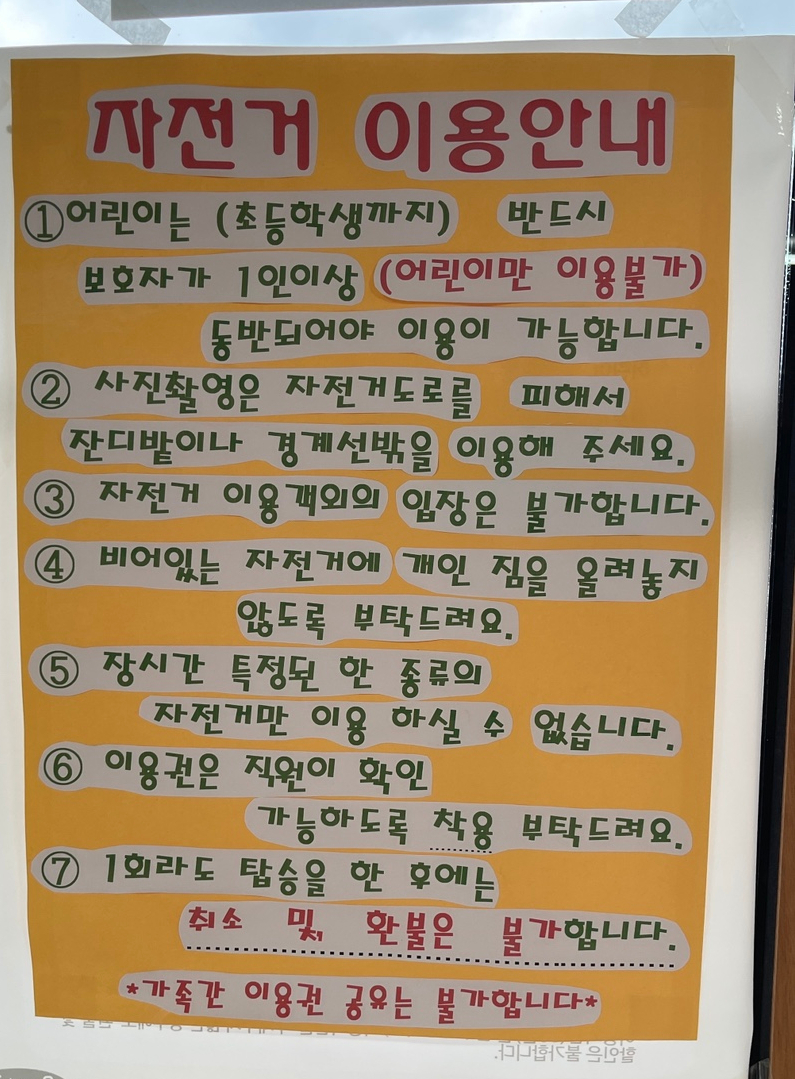 자전거 이용안내
①어린이는 (초등학생까지) 반드시
보호자가 1인이상 (어린이만 이용불가)
동반되어야 이용이 가능합니다.
② 사진촬영은 자전거도로를 피해서
잔디밭이나 경계선밖을 이용해 주세요.
③ 자전거 이용객외의 입장은 불가합니다.
④ 비어있는 자전거에 개인 짐을 올려놓지
않도록 부탁드려요.
⑤ 장시간 특정된 한 종류의
자전거만 이용 하실 수 없습니다.
⑥ 이용권은 직원이 확인
가능하도록 착용 부탁드려요.
⑦ 1회라도 탑승을 한 후에는
취소 및 환불은 불가합니다.
*가족간 이용권 공유는 불가합니다*
할인은 불가합니다.